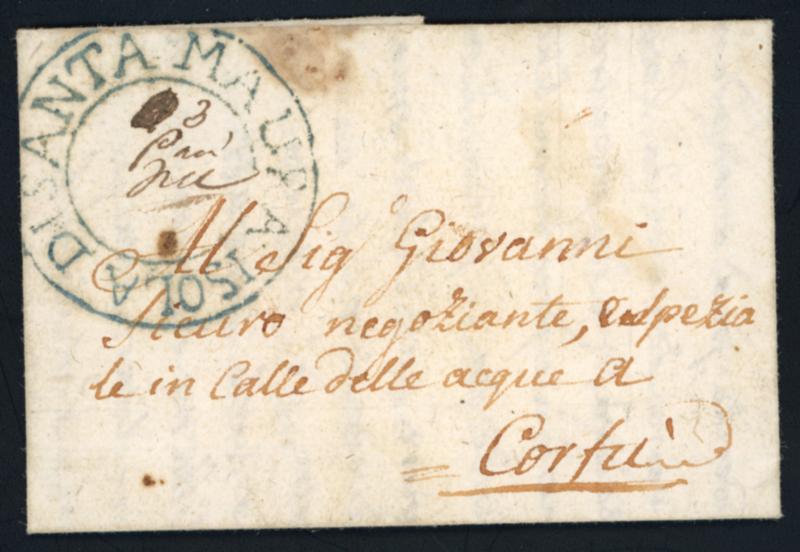 ISOLA DI SANTA MAURA
3
Al Sigr Giovanni
Sicuro negoziante, e spezia
le in Calle delle acque a
Corfù